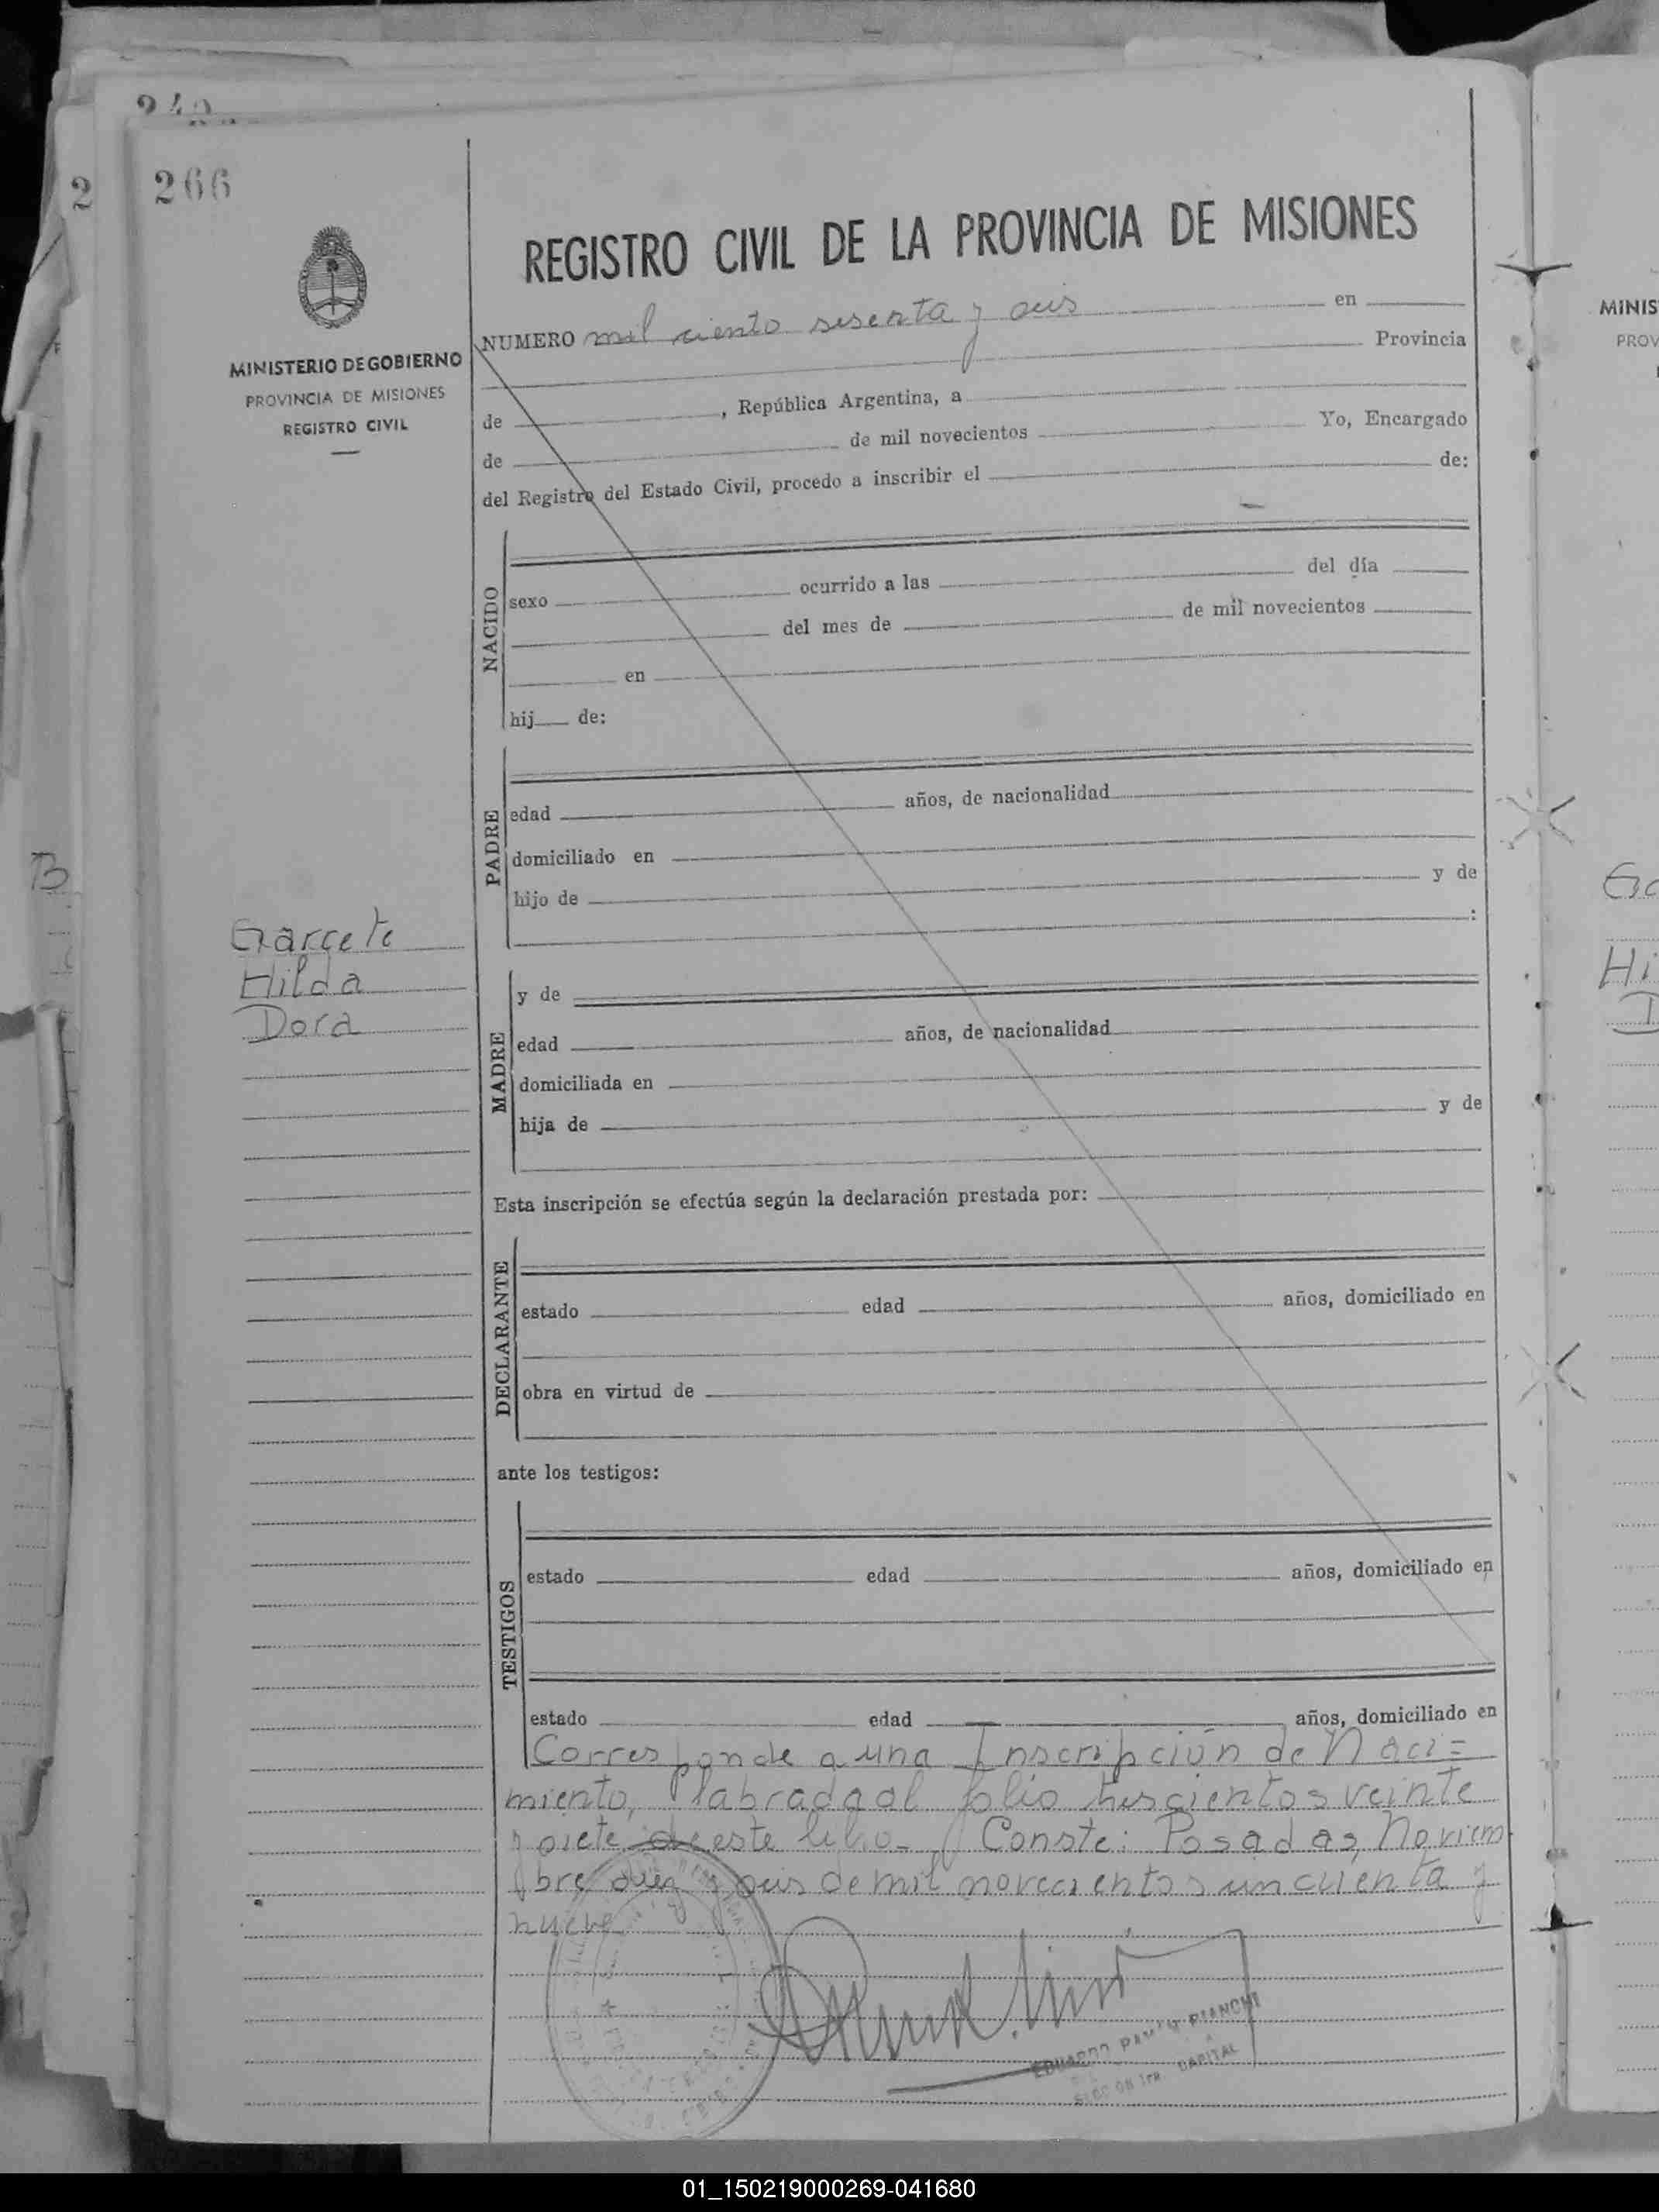 266
MINISTERIO DE GOBIERNO
PROVINCIA DE MISIONES
REGISTRO CIVIL
REGISTRO CIVIL DE LA PROVINCIA DE MISIONES
NUMERO mil ciento sesenta y seis en
Provincia
de , República Argentina, a
de de mil novecientos Yo, Encargado
del Registro del Estado Civil, procedo a inscribir el de:
NACIDO
sexo ocurrido a las del día
del mes de de mil novecientos
en
hij de:
PADRE
edad años, de nacionalidad
domiciliado en
hijo de y de
:
Garcete
Hilda
Dora
MADRE
y de
edad años, de nacionalidad
domiciliada en
hija de y de
Esta inscripción se efectúa según la declaración prestada por:
DECLARANTE
estado edad años, domiciliado en
obra en virtud de
ante los testigos:
TESTIGOS
estado edad años, domiciliado en
estado edad años, domiciliado en
Corresponde a una Inscripción de Naci=
miento, labrada al folio trescientos veinte
y siete de este libro_ Conste: Posadas, Noviem
bre diez y seis de mil novecientos cincuenta y
nueve
EDUARDO RAMON BIANCHI
CAPITAL
MINIS
PROV
Hi
01_150219000269-041680